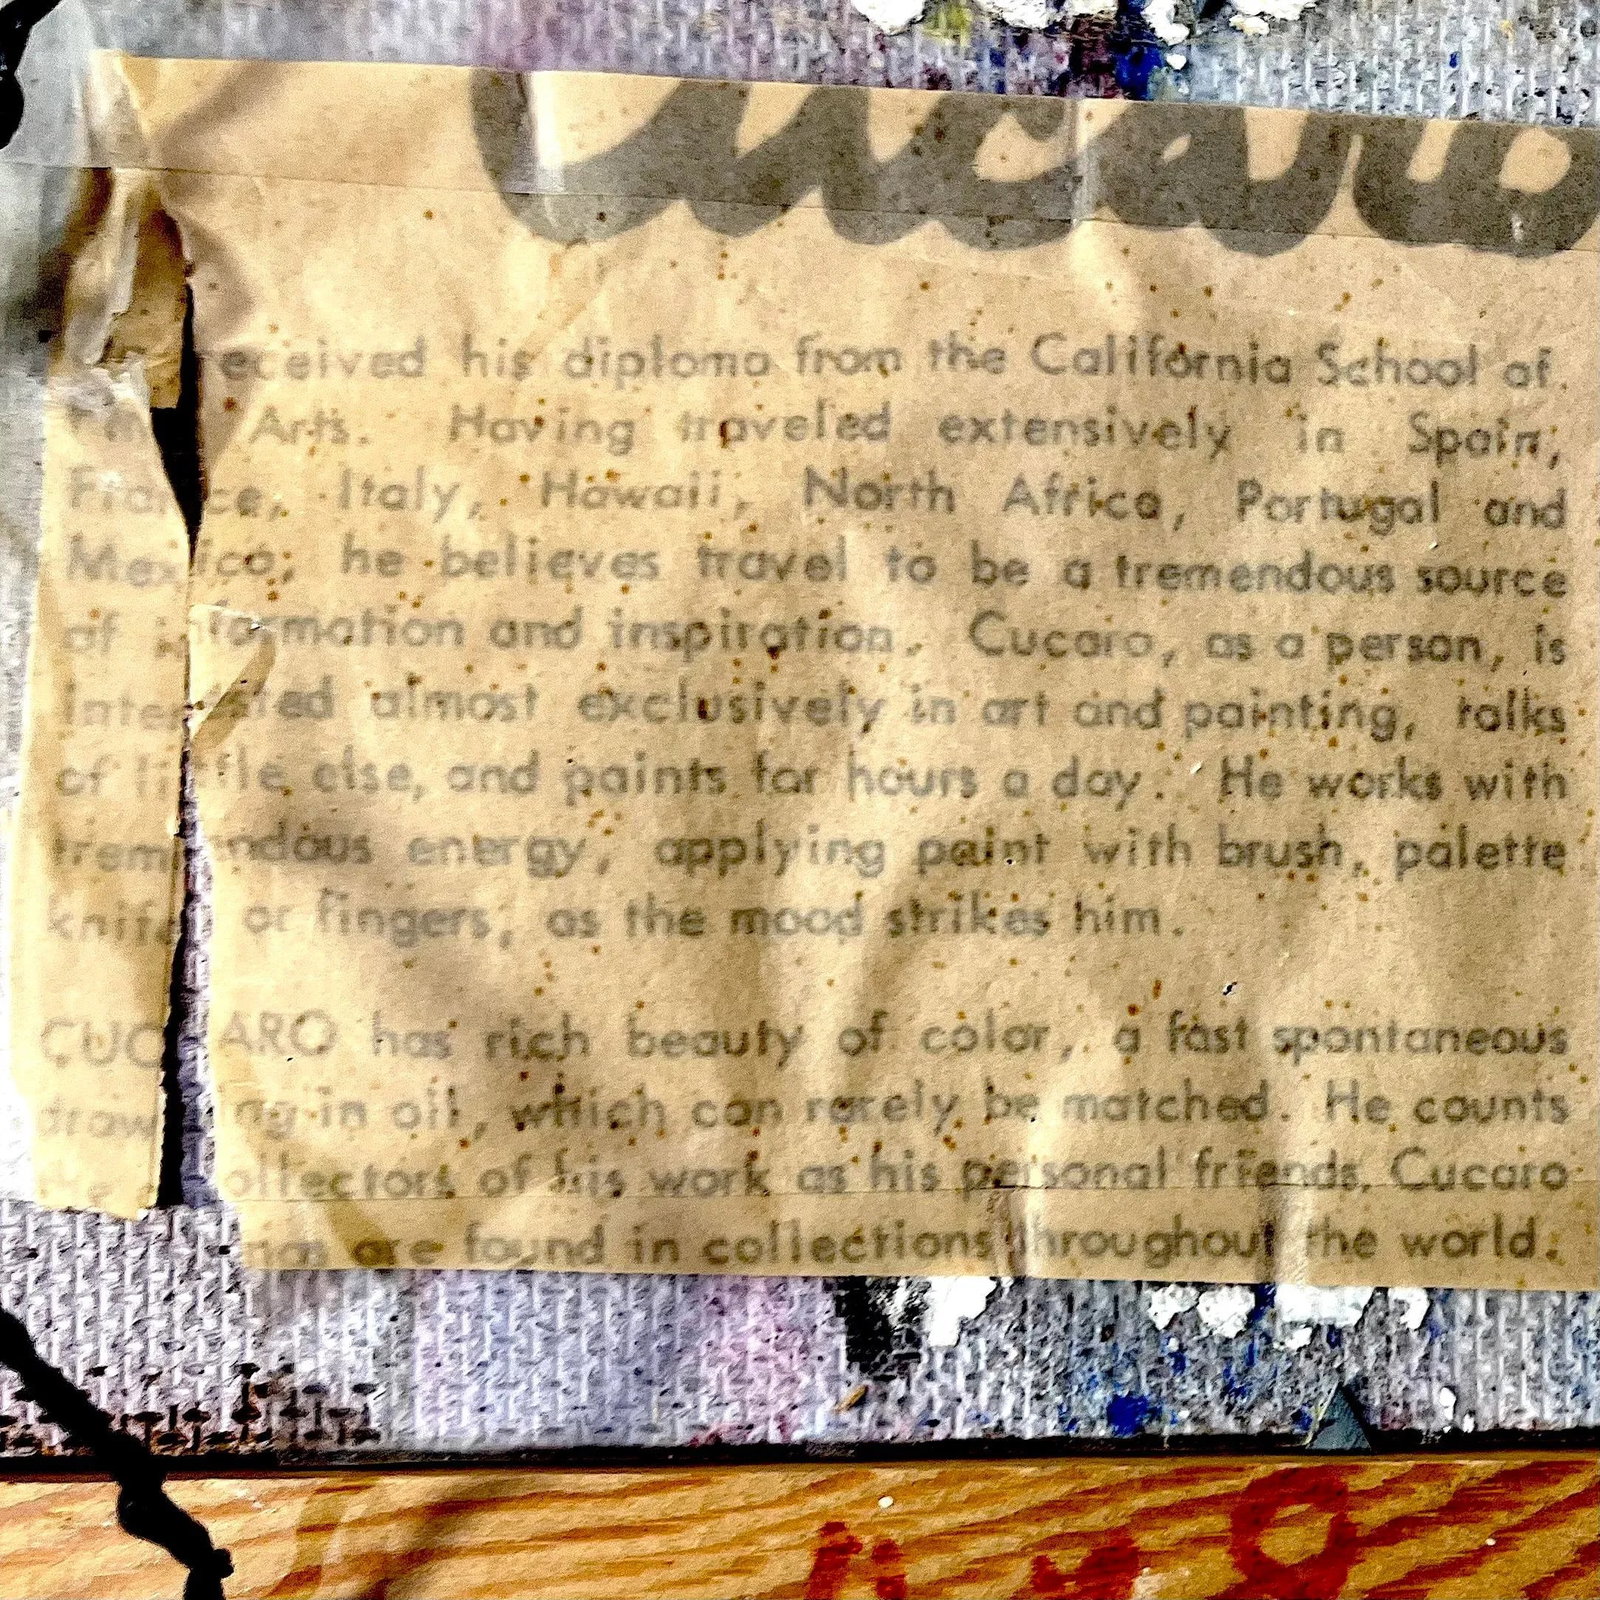 Cucaro
received his diploma from the California School of
Fine Arts. Having traveled extensively in Spain,
France, Italy, Hawaii, North Africa, Portugal and
Mexico; he believes travel to be a tremendous source
of information and inspiration. Cucaro, as a person, is
interested almost exclusively in art and painting, talks
of little else, and paints for hours a day. He works with
tremendous energy, applying paint with brush, palette
knife or fingers, as the mood strikes him.
CUCARO has rich beauty of color, a fast spontaneous
drawing in oil, which can rarely be matched. He counts
the collectors of his work as his personal friends. Cucaro
are found in collections throughout the world.